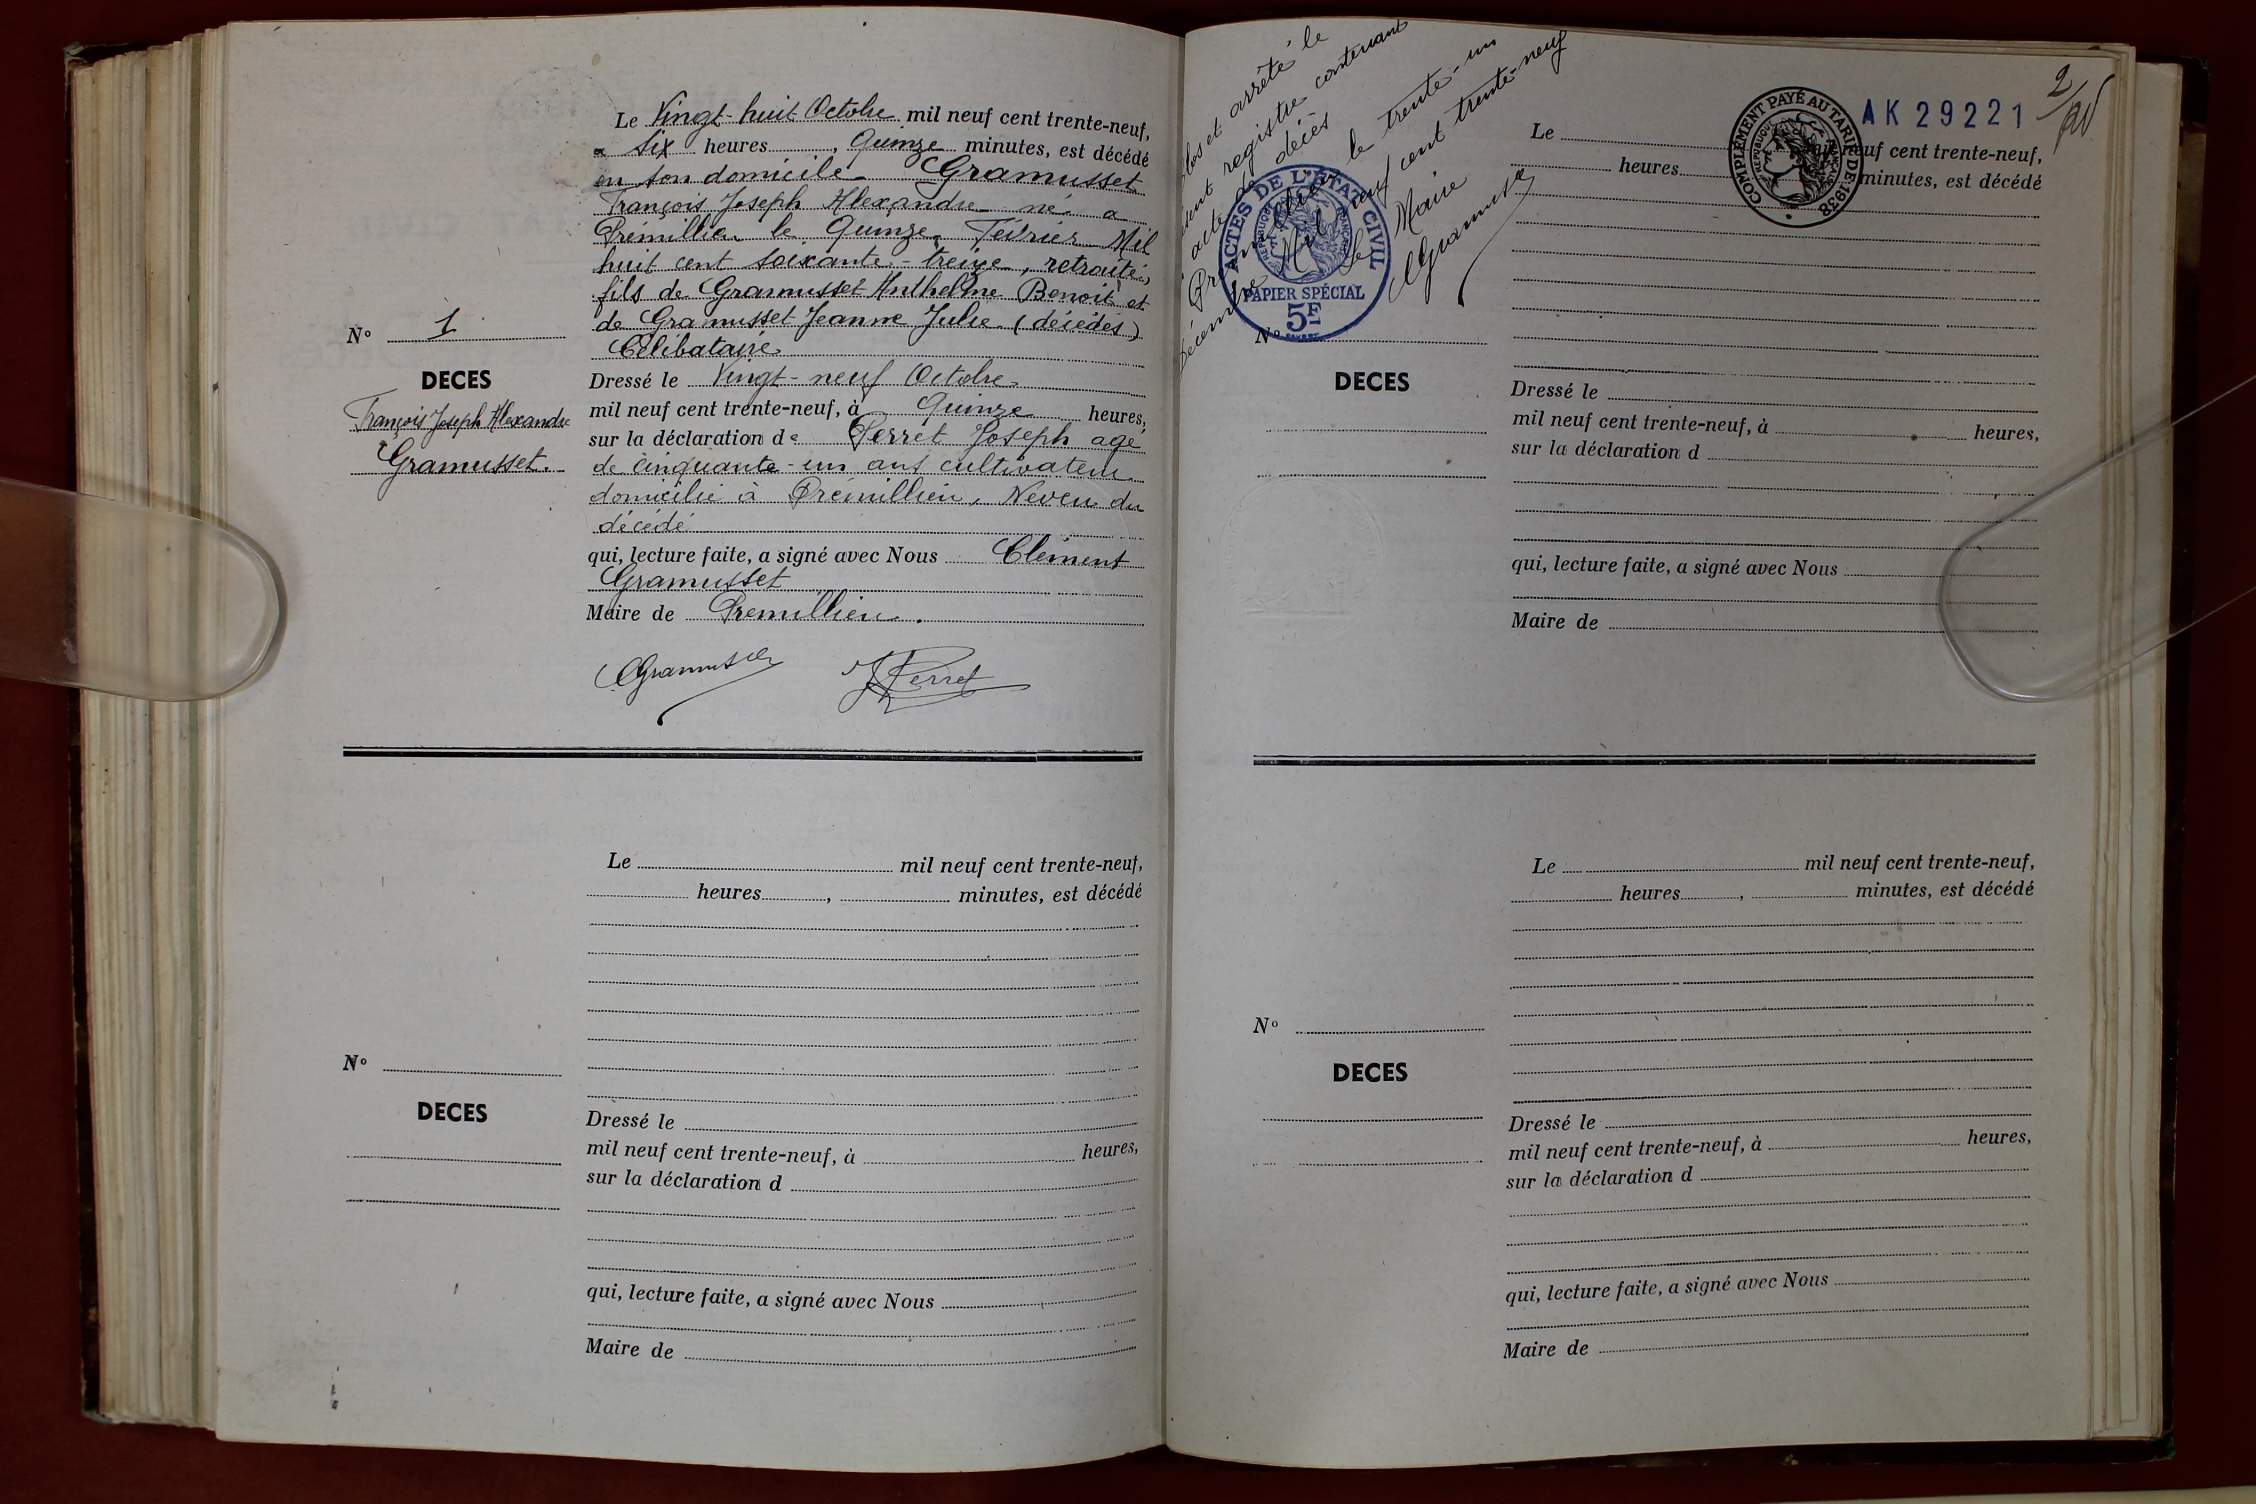 Le Vingt-huit Octobre mil neuf cent trente-neuf,
a six heures, Quinze minutes, est décédé
en son domicile Gramusset
François Joseph Alexandre né a
Prémillieu le Quinze Février Mil
huit cent soixante-treize, retraité,
fils de Gramusset Anthelme Benoit et
de Gramusset Jeanne Julie (décédés)
Célibataire
N° 1
DECES
François Joseph Alexandre
Gramusset.
Dressé le Vingt-neuf Octobre
mil neuf cent trente-neuf, à Quinze heures,
sur la déclaration de Perret Joseph agé
de cinquante-un ans cultivateur
domicilié à Prémillieu, Neveu du
décédé
qui, lecture faite, a signé avec Nous Clément
Gramusset
Maire de Prémillieu.
CGramusset
JPerret
Le mil neuf cent trente-neuf,
heures, minutes, est décédé
N°
DECES
Dressé le
mil neuf cent trente-neuf, à heures,
sur la déclaration d
qui, lecture faite, a signé avec Nous
Maire de
Clos et arrêté le
registre contenant
acte de décès
Prémillieu le trente-un
décembre Mil neuf cent trente-neuf
Le Maire
CGramusset
ACTES DE L'ETAT CIVIL
REPUBLIQUE FRANÇAISE
PAPIER SPÉCIAL
5F
COMPLÉMENT PAYÉ AU TARIF DE 1938
REPUBLIQUE FRANÇAISE
AK 29221
2
Le mil neuf cent trente-neuf,
heures minutes, est décédé
N°
DECES
Dressé le
mil neuf cent trente-neuf, à heures,
sur la déclaration d
qui, lecture faite, a signé avec Nous
Maire de
Le mil neuf cent trente-neuf,
heures, minutes, est décédé
N°
DECES
Dressé le
mil neuf cent trente-neuf, à heures,
sur la déclaration d
qui, lecture faite, a signé avec Nous
Maire de